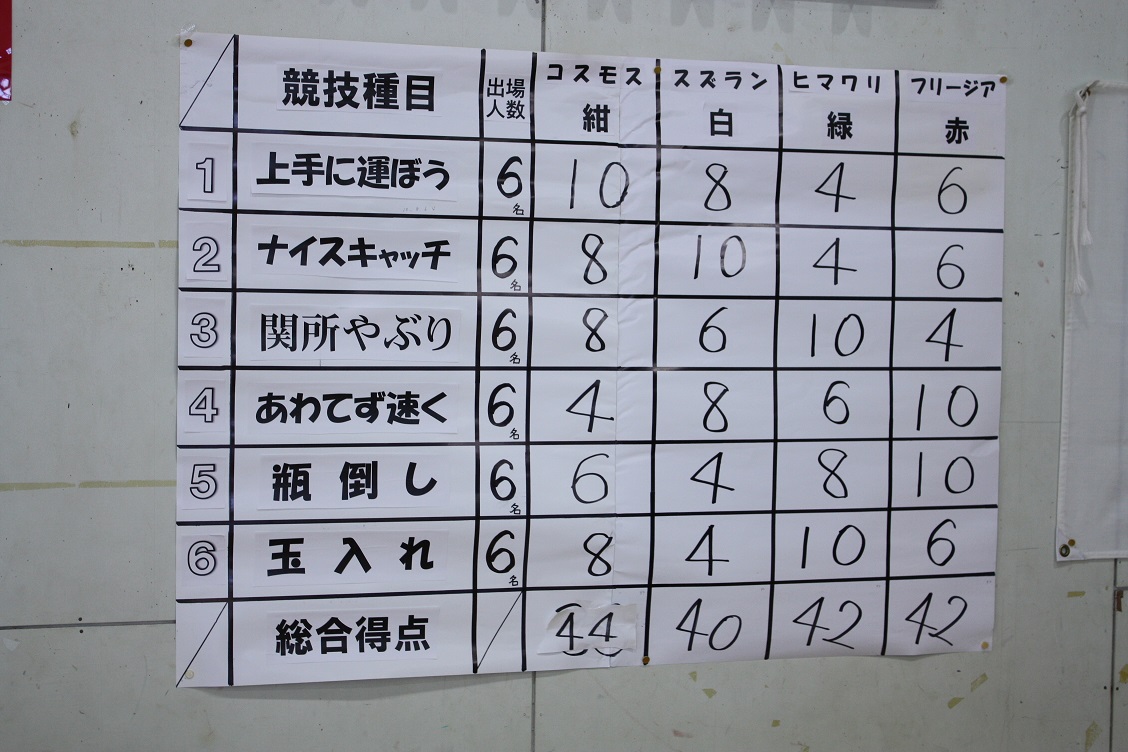 競技種目 出場人数 コスモス 紺 スズラン 白 ヒマワリ 緑 フリージア 赤
1 上手に運ぼう 6名 10 8 4 6
2 ナイスキャッチ 6名 8 10 4 6
3 関所やぶり 6名 8 6 10 4
4 あわてず速く 6名 4 8 6 10
5 瓶倒し 6名 6 4 8 10
6 玉入れ 6名 8 4 10 6
総合得点 44 40 42 42